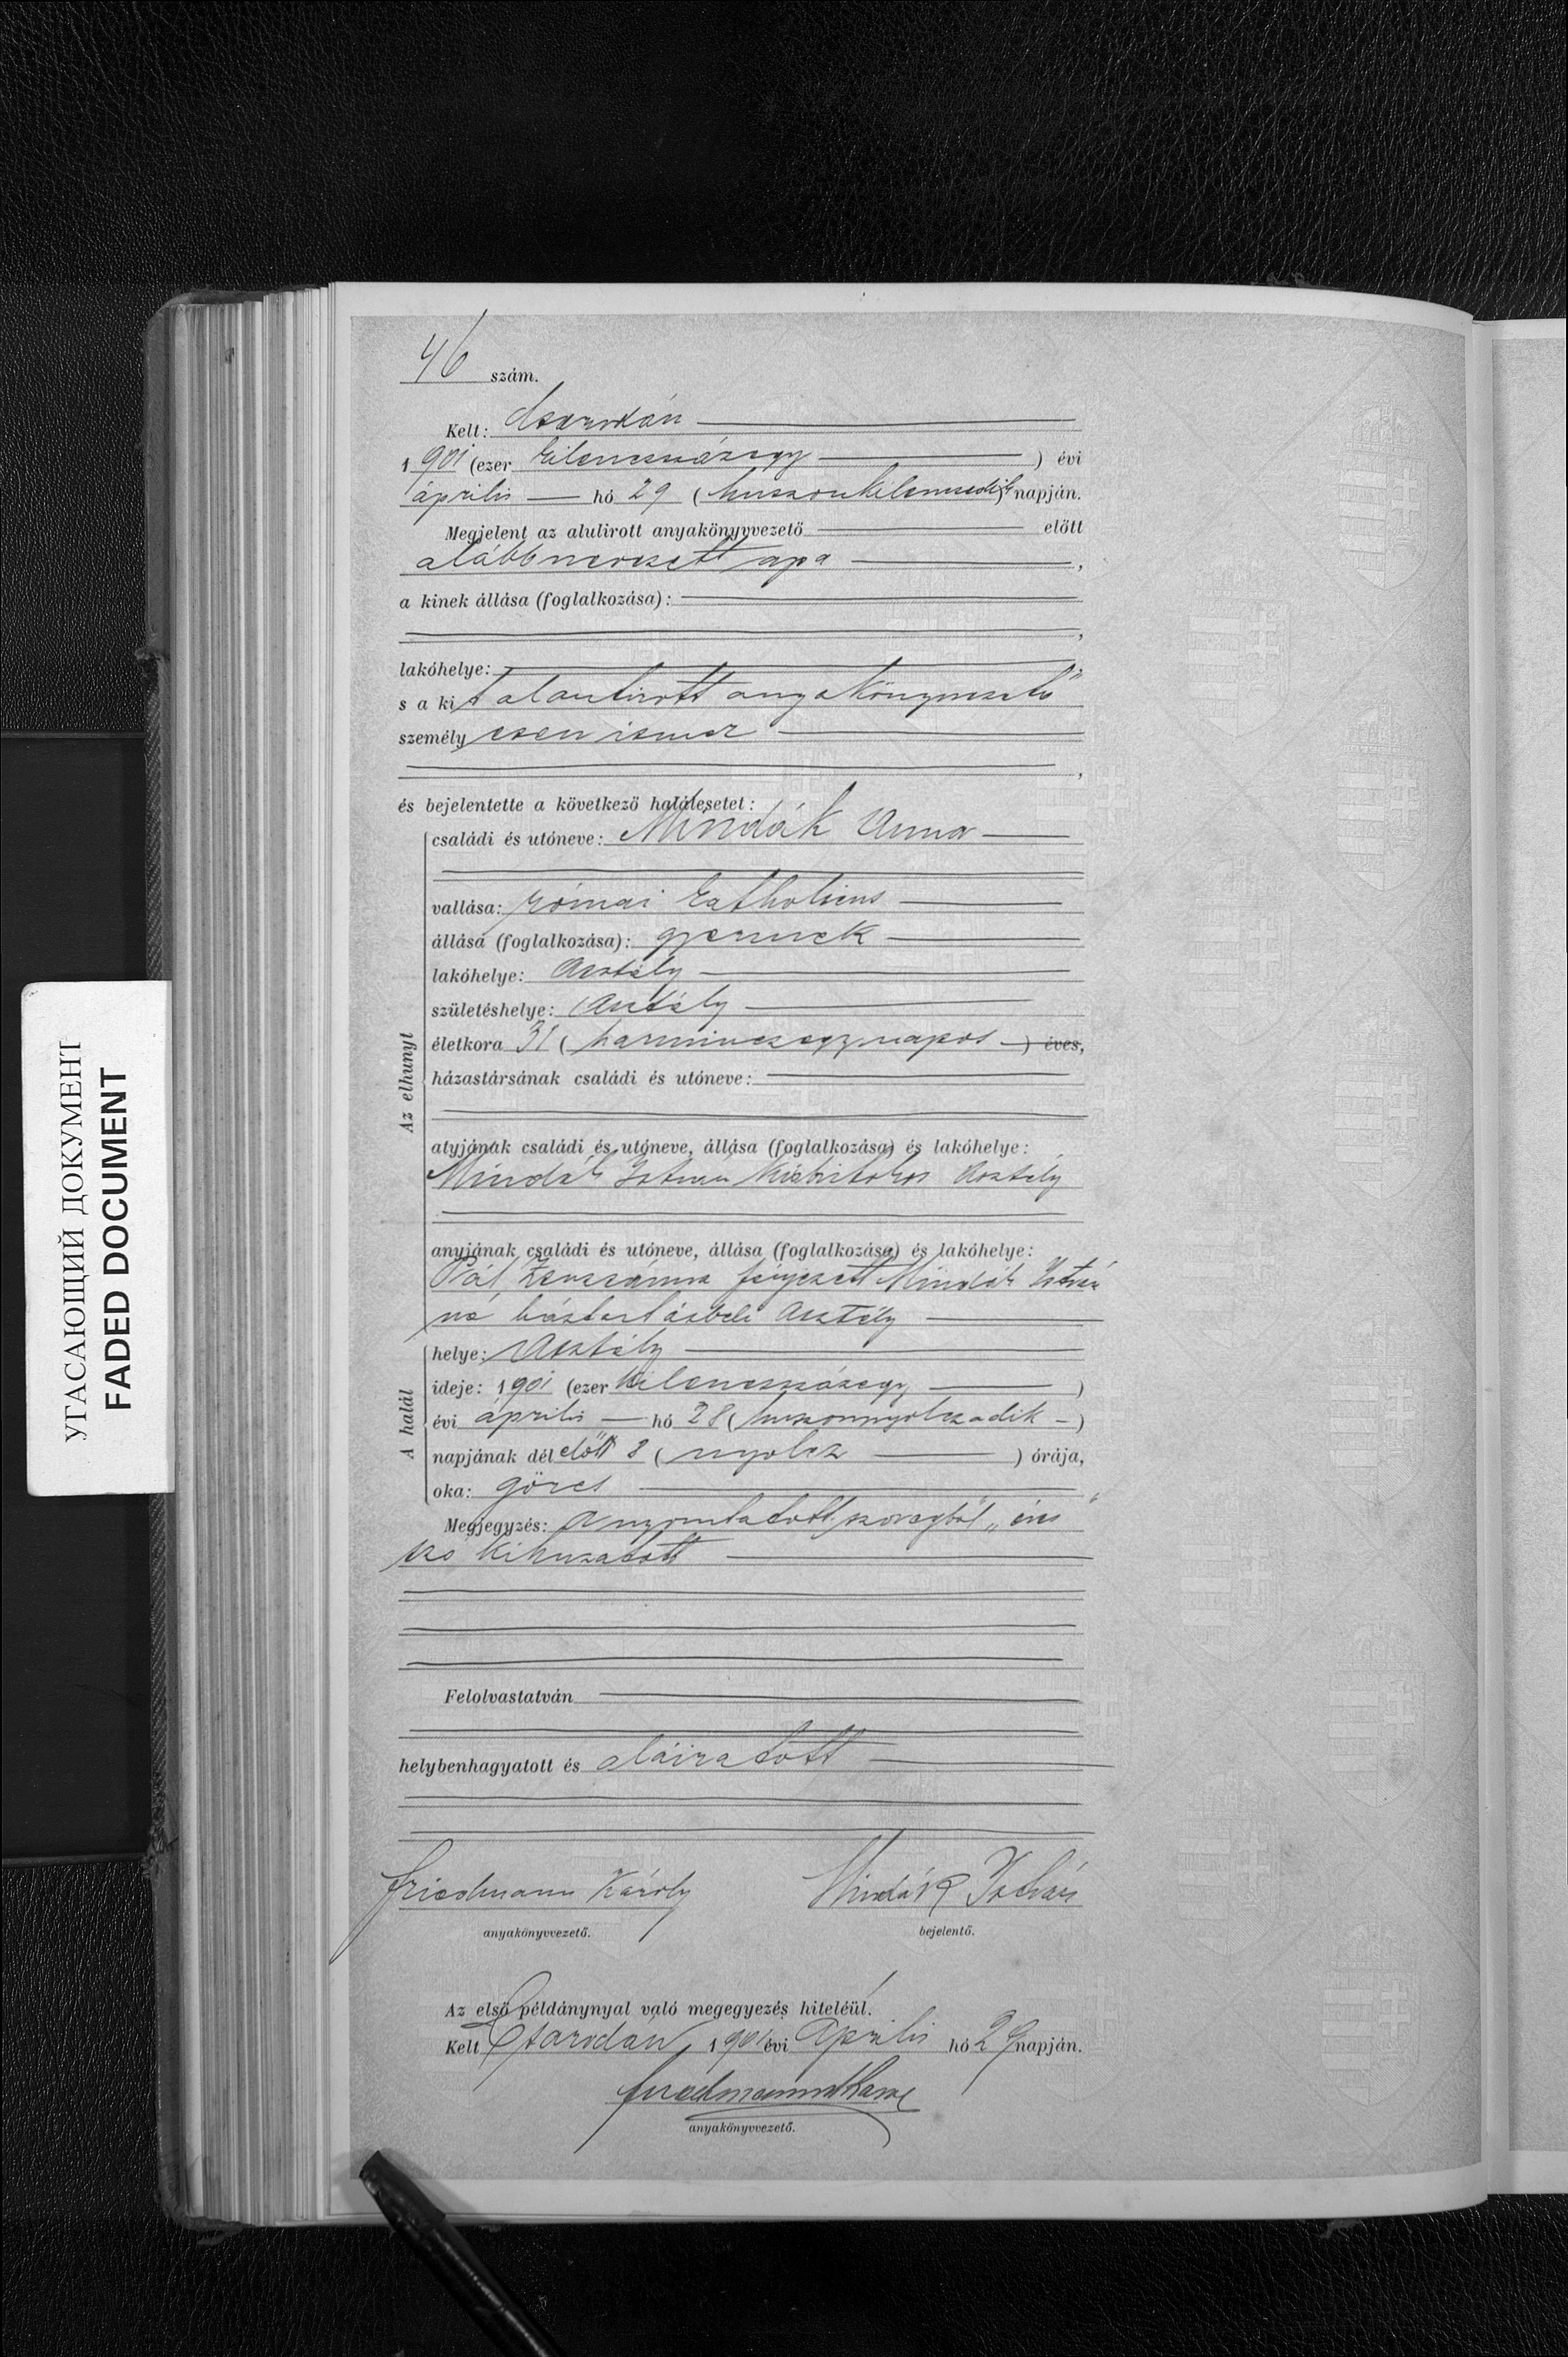 46 szám.
Kelt: Csarodán
1901 (ezer kilenczszázegy) évi
április hó 29 (huszonkilenczedik) napján.
Megjelent az alulirott anyakönyvvezető előtt
alább nevezett apa,
a kinek állása (foglalkozása):
lakóhelye:
s a kit alantirott anyakönyvvezető
személyesen ismer
és bejelentette a következő halálesetet:
Az elhunyt
családi és utóneve: Mindák Anna
vallása: római katholicus
állása (foglalkozása): gyermek
lakóhelye: Asztély
születéshelye: Asztély
életkora 31 (harminczegy napos) éves,
házastársának családi és utóneve:
atyjának családi és utóneve, állása (foglalkozása) és lakóhelye:
Mindák István kisbirtokos Asztély
anyjának családi és utóneve, állása (foglalkozása) és lakóhelye:
Pál Zsuzsánna férjezett Mindák István
né háztartásbeli Asztély
A halál
helye: Asztély
ideje: 1901 (ezer kilenczszázegy)
évi április hó 28 (huszonnyolczadik)
napjának délelőtt 8 (nyolcz) órája,
oka: görcs
Megjegyzés: A nyomtatott szövegből „éves"
szó kihuzatott
Felolvastatván
helybenhagyatott és aláiratott
Friedmann Károly Mindák István
anyakönyvvezető. bejelentő.
Az első példánynyal való megegyezés hiteléül.
Kelt Csarodán, 1901 évi Április hó 29 napján.
anyakönyvvezető.
УГАСАЮЩИЙ ДОКУМЕНТ
FADED DOCUMENT